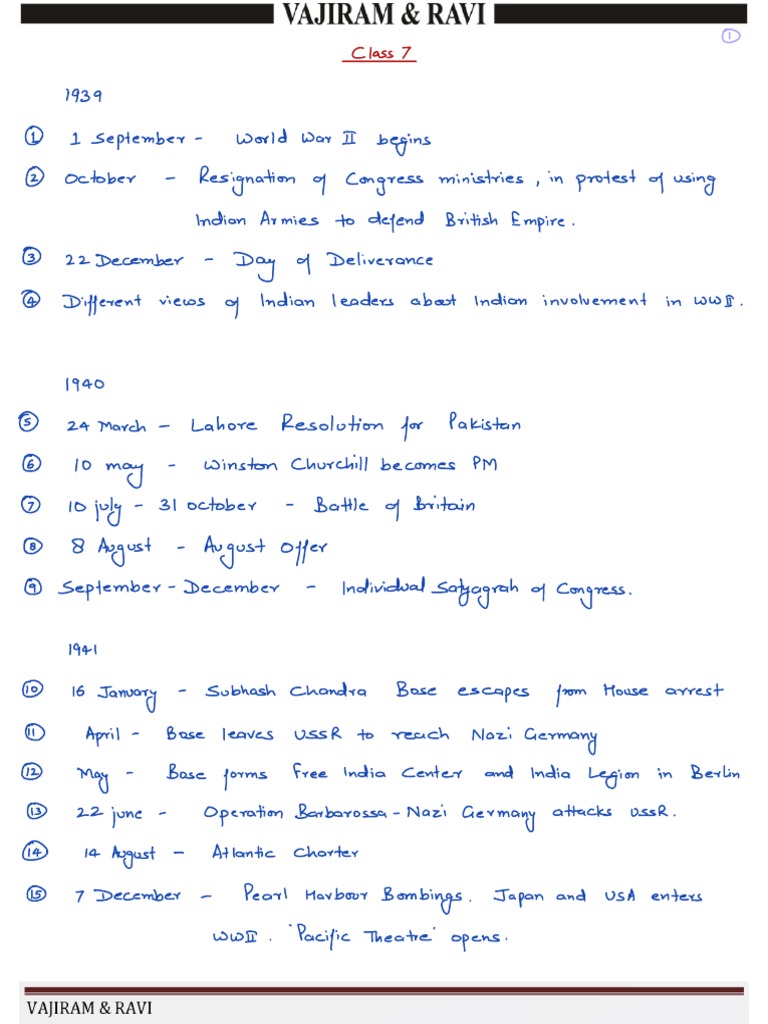 VAJIRAM & RAVI
1
Class 7
1939
1 1 September - World War II begins
2 October - Resignation of Congress ministries, in protest of using
Indian Armies to defend British Empire.
3 22 December - Day of Deliverance
4 Different views of Indian leaders about Indian involvement in WWII.
1940
5 24 March - Lahore Resolution for Pakistan
6 10 may - Winston Churchill becomes PM
7 10 july - 31 october - Battle of Britain
8 8 August - August Offer
9 September - December - Individual Satyagrah of Congress.
1941
10 16 January - Subhash Chandra Bose escapes from House arrest
11 April - Bose leaves USSR to reach Nazi Germany
12 May - Bose forms Free India Center and India Legion in Berlin
13 22 june - Operation Barbarossa - Nazi Germany attacks USSR.
14 14 August - Atlantic Charter
15 7 December - Pearl Harbour Bombings. Japan and USA enters
WWII. 'Pacific Theatre' opens.
VAJIRAM & RAVI